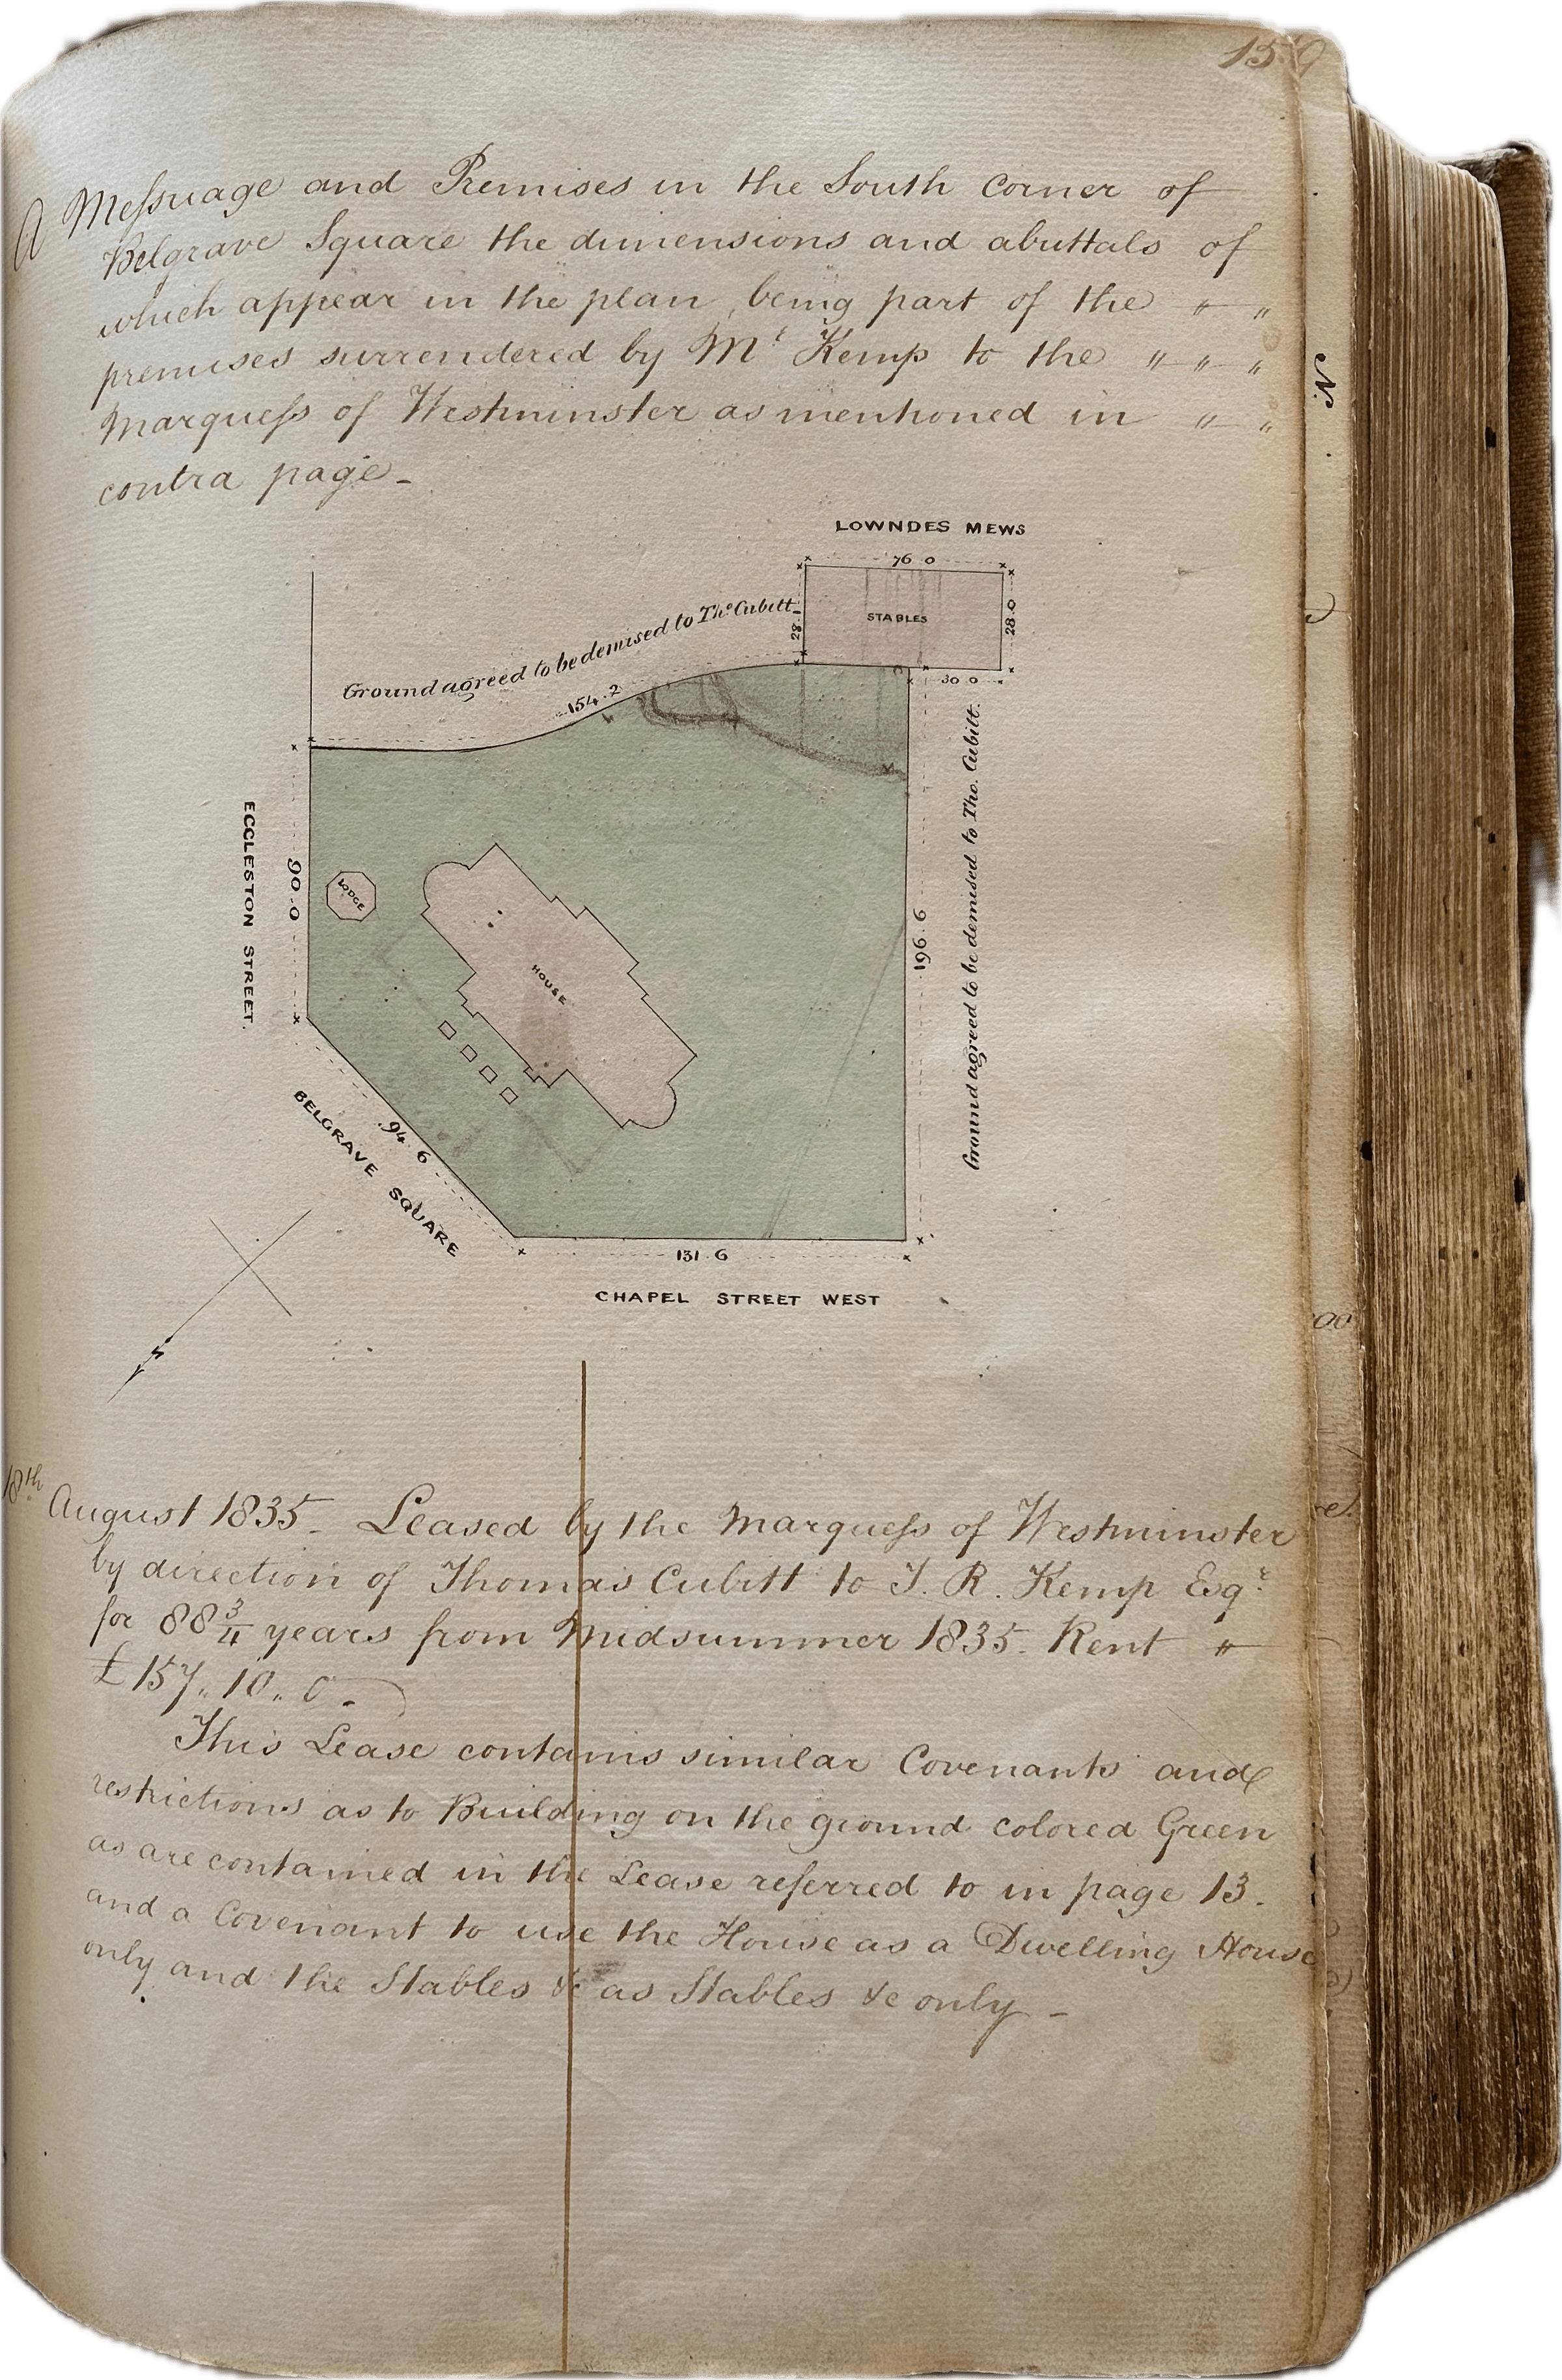 159
A Meſsuage and Premises in the South Corner of
Belgrave Square the dimensions and abuttals of
which appear in the plan, being part of the " "
premises surrendered by Mr Kemp to the " " "
Marqueſs of Westminster as mentioned in " "
contra page -
LOWNDES MEWS
76 0
STABLES
28.1
28.0
30 0
Ground agreed to be demised to Thos Cubitt
154.2
ECCLESTON STREET.
90.0
LODGE
HOUSE
196.6
Ground agreed to be demised to Tho. Cubitt.
94.6
BELGRAVE SQUARE
131.6
CHAPEL STREET WEST
N
18th August 1835 - Leased by the Marqueſs of Westminster
by direction of Thomas Cubitt to T. R. Kemp Esqr
for 88 3/4 years from Midsummer 1835. Rent "
£157,, 10,, 0 -
This Lease contains similar Covenants and
restrictions as to Building on the ground colored Green
as are contained in the Lease referred to in page 13.
and a Covenant to use the House as a Dwelling House
only and the Stables &c as Stables &c only -